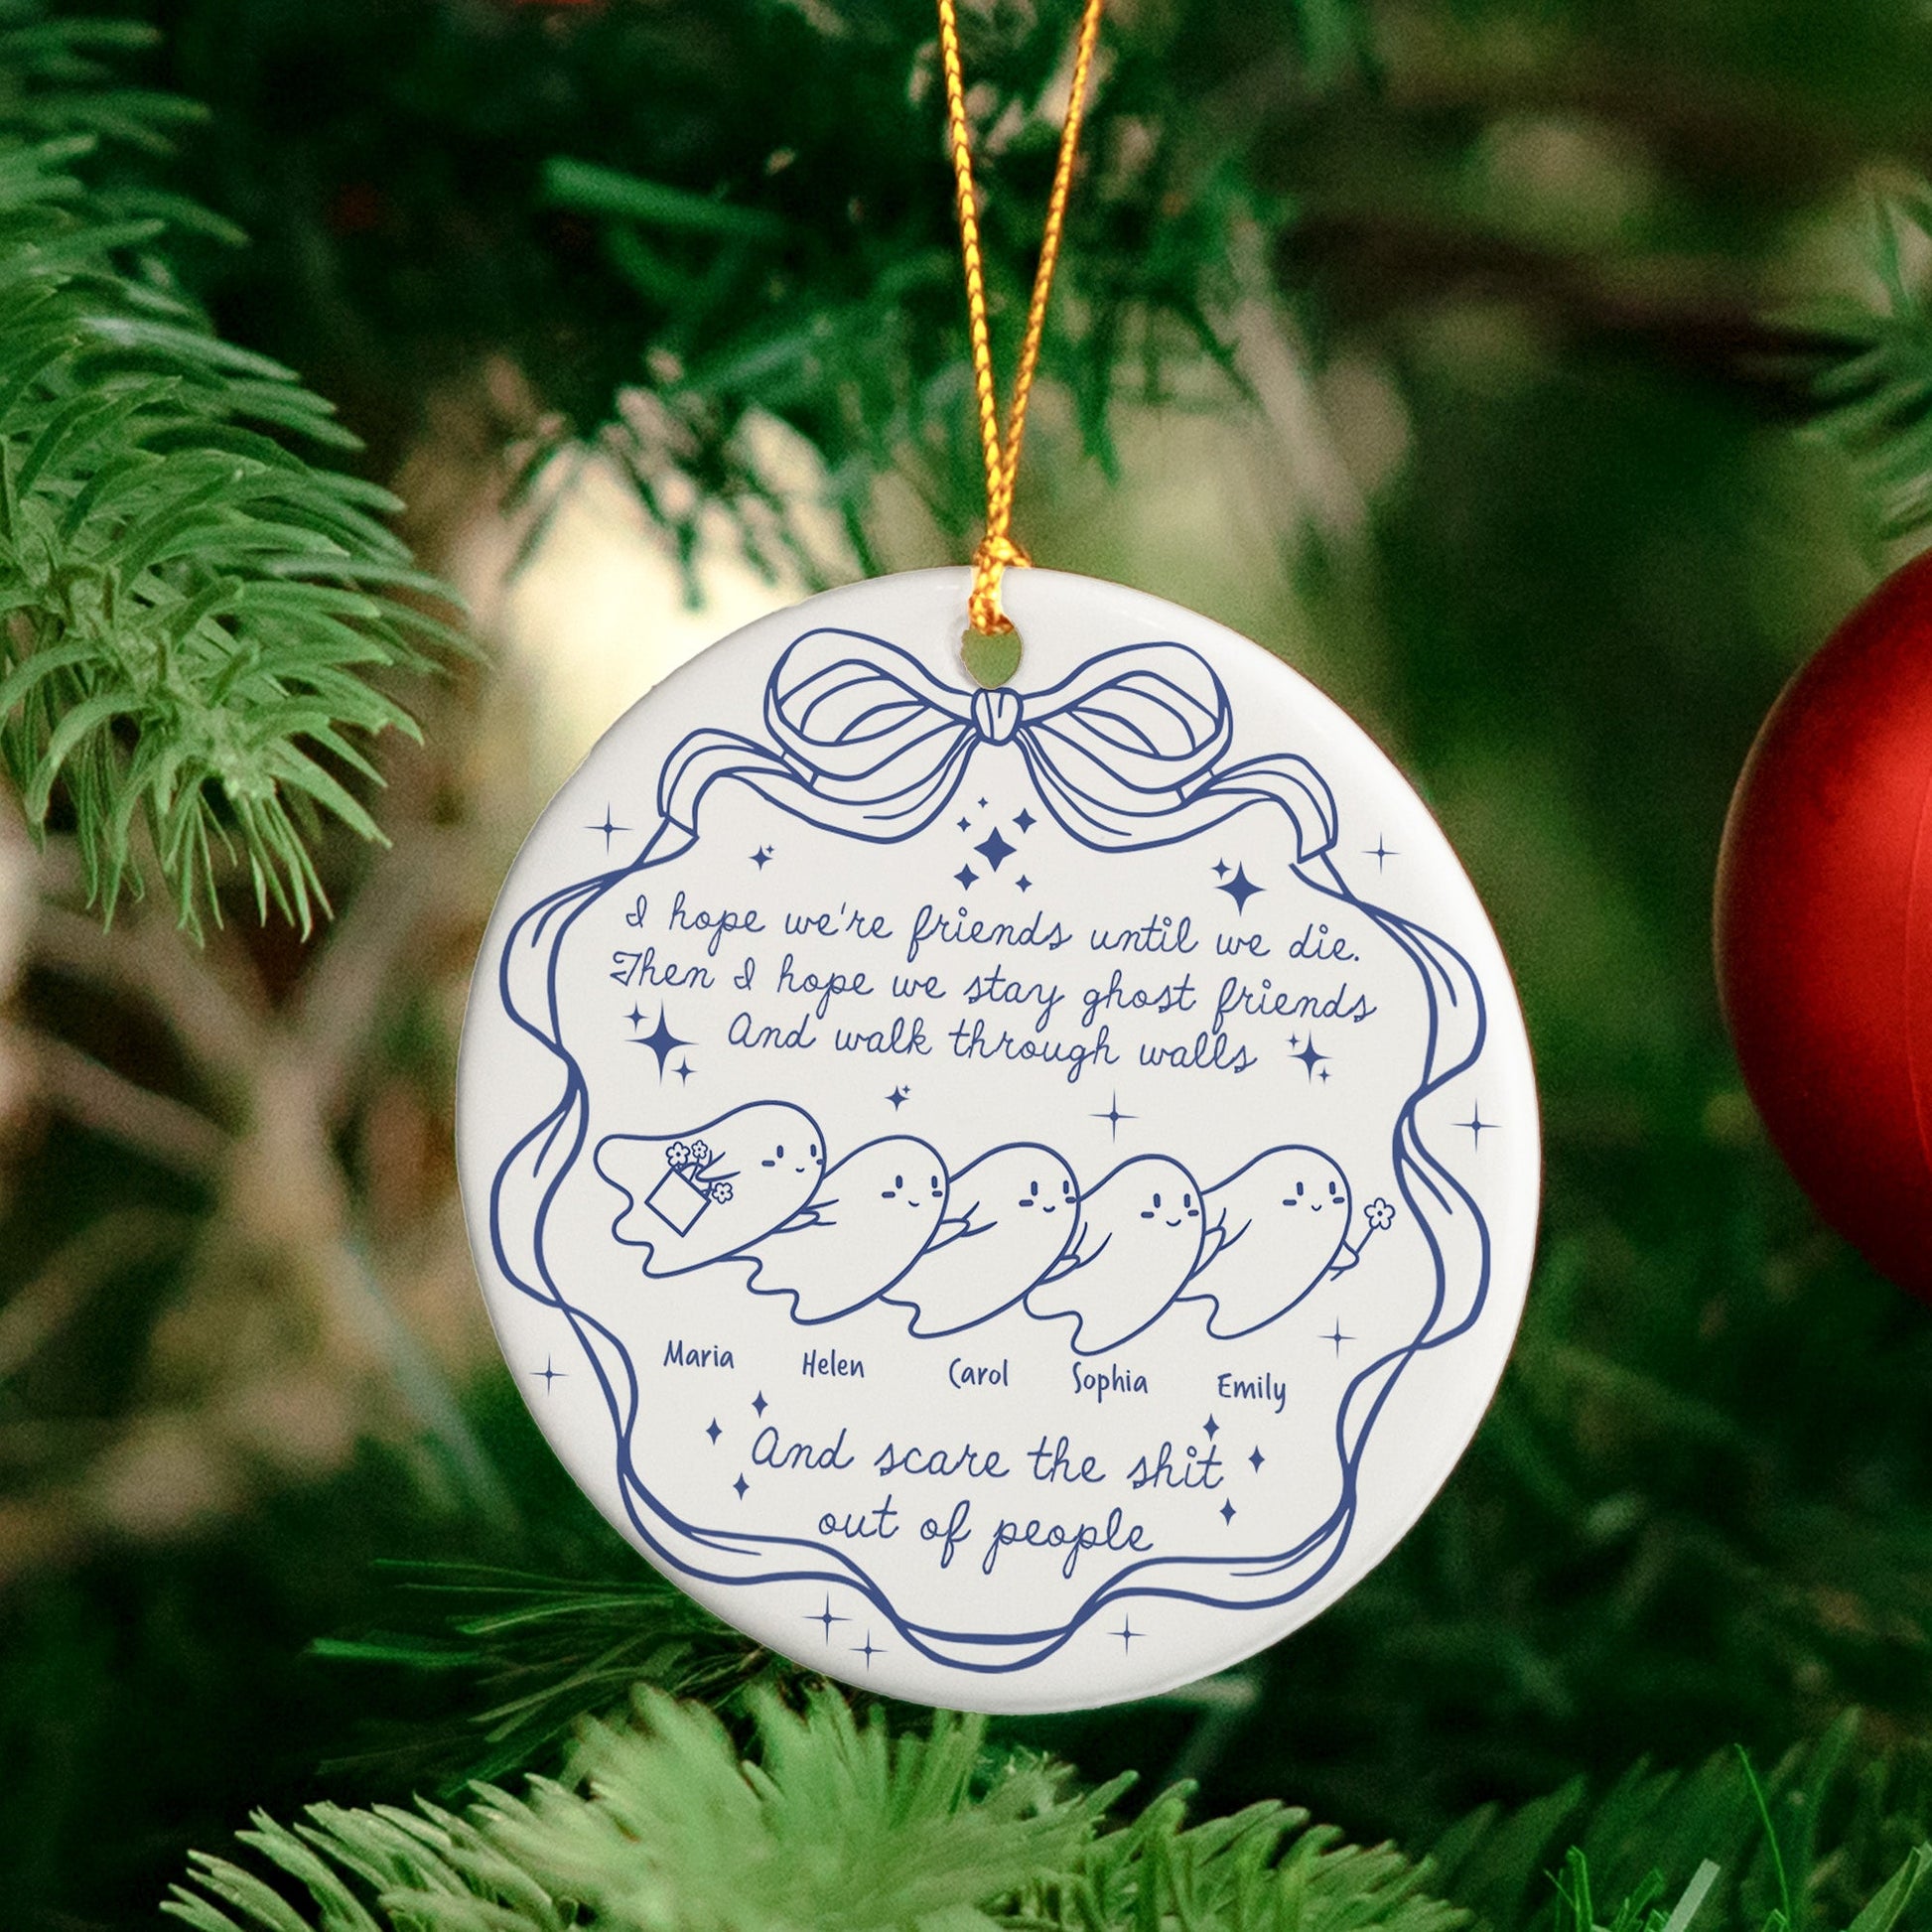 I hope we're friends until we die.
Then I hope we stay ghost friends
And walk through walls
Maria Helen Carol Sophia Emily
And scare the shit
out of people